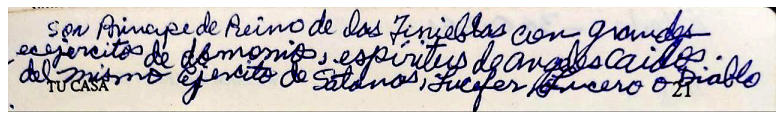 son Principe de Reino de las Tinieblas con grandes
ecejercitos de demonios, espíritus de angeles caidos.
del mismo Ejercito de Satanas, Lucefer, Lucero o Diablo
TU CASA 21